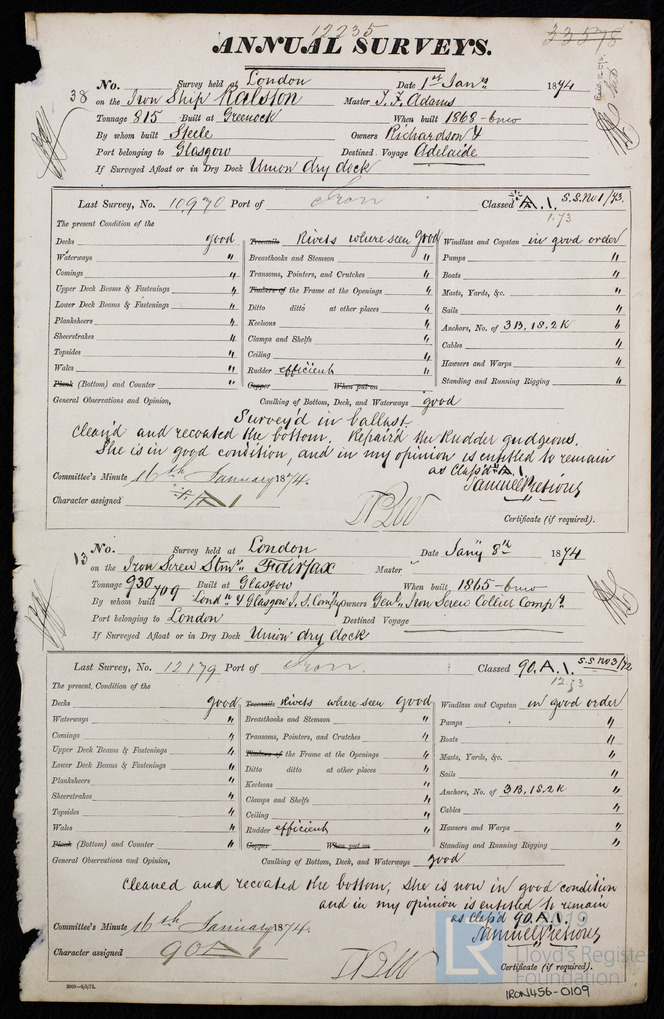 12235
33578
ANNUAL SURVEYS.
38 No. Survey held at London Date 1st Jany 1874
on the Iron Ship Ralston Master J. F. Adams
Tonnage 815 Built at Greenock When built 1868-6mo
By whom built Steele Owners Richardson &
Port belonging to Glasgow Destined Voyage Adelaide
If Surveyed Afloat or in Dry Dock Union dry dock
Last Survey, No. 10970 Port of Iron Classed A.1. S.S. No 1/73.
1.73
The present Condition of the
Decks good Treenails Rivets where seen good Windlass and Capstan in good order
Waterways " Breasthooks and Stemson " Pumps "
Comings " Transoms, Pointers, and Crutches " Boats "
Upper Deck Beams & Fastenings " Timbers of the Frame at the Openings " Masts, Yards, &c. "
Lower Deck Beams & Fastenings " Ditto ditto at other places " Sails "
Planksheers " Keelsons " Anchors, No. of 3B, 1S. 2K "
Sheerstrakes " Clamps and Shelfs " Cables "
Topsides " Ceiling " Hawsers and Warps "
Wales " Rudder efficient Standing and Running Rigging "
Plank (Bottom) and Counter " Copper When put on
General Observations and Opinion, Caulking of Bottom, Deck, and Waterways good
Survey'd in ballast.
Clean'd and recoated the bottom. Repair'd the Rudder gudgeons.
She is in good condition, and in my opinion is entitled to remain
as Class'd A.1.
Committee's Minute 16th January 1874.
Samuel Pretious
Character assigned A 1
Certificate (if required).
13 No. Survey held at London Date Jany 8th 1874
on the Iron Screw Stmr. Fairfax Master
Tonnage 930 709 Built at Glasgow When built 1865-6mo
By whom built Londn & Glasgow I. S. Compy Owners Genl. Iron Screw Collier Compy.
Port belonging to London Destined Voyage
If Surveyed Afloat or in Dry Dock Union dry dock
Last Survey, No. 12179 Port of Iron. Classed 90.A.1. S.S No 3/72
12.73
The present, Condition of the
Decks good Treenails Rivets where seen good Windlass and Capstan in good order
Waterways " Breasthooks and Stemson " Pumps "
Comings " Transoms, Pointers, and Crutches " Boats "
Upper Deck Beams & Fastenings " Timbers of the Frame at the Openings " Masts, Yards, &c. "
Lower Deck Beams & Fastenings " Ditto ditto at other places " Sails "
Planksheers " Keelsons " Anchors, No. of 3B, 1S. 2K "
Sheerstrakes " Clamps and Shelfs " Cables "
Topsides " Ceiling " Hawsers and Warps "
Wales " Rudder efficient Standing and Running Rigging "
Plank (Bottom) and Counter " Copper When put on
General Observations and Opinion, Caulking of Bottom, Deck, and Waterways good
Cleaned and recoated the bottom, She is now in good condition
and in my opinion is entitled to remain
as Class'd 90.A.1.
Committee's Minute 16th January 1874.
Samuel Pretious
Character assigned 90 A 1
Certificate (if required).
2019
LR Lloyd's Register Foundation
IRON456-0109